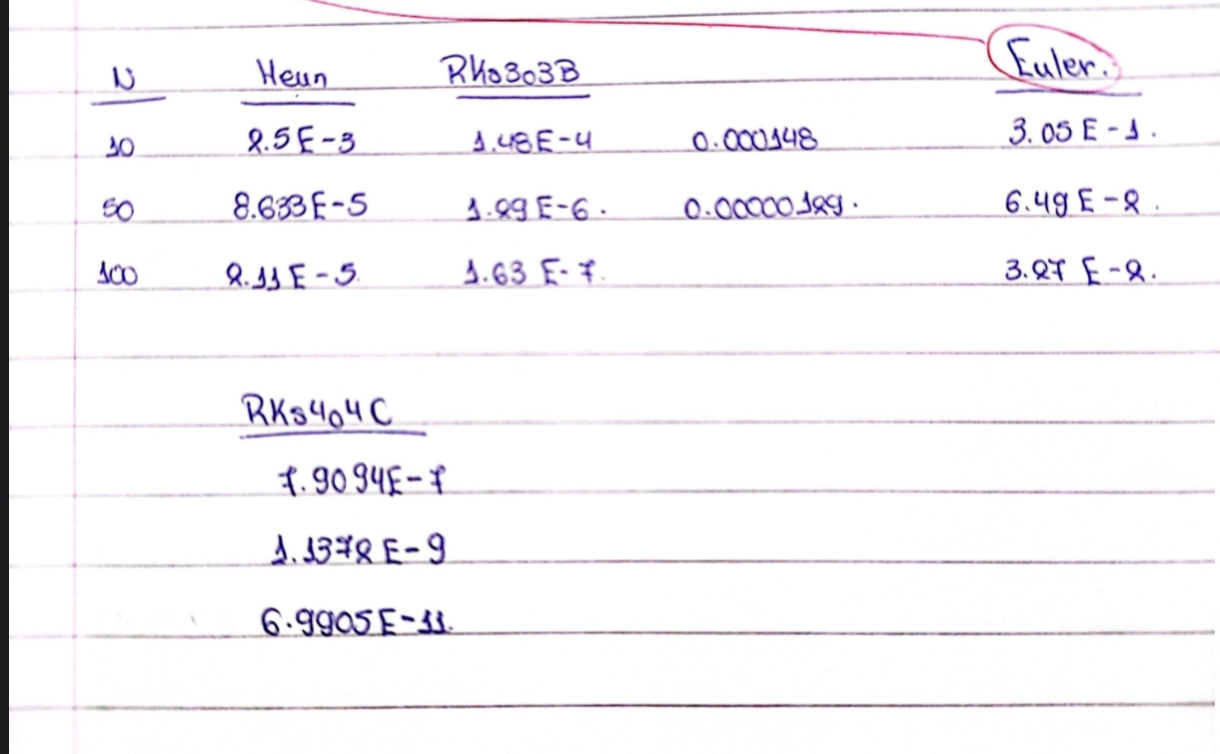 N Heun RKo3o3B Euler.
10 2.5E-3 1.48E-4 0.000148 3.05E-1.
50 8.633E-5 1.29E-6. 0.00000129. 6.49E-2.
100 2.11E-5. 1.63E-7. 3.27E-2.
RKs4o4C
7.9094E-7
1.1372E-9
6.9905E-11.